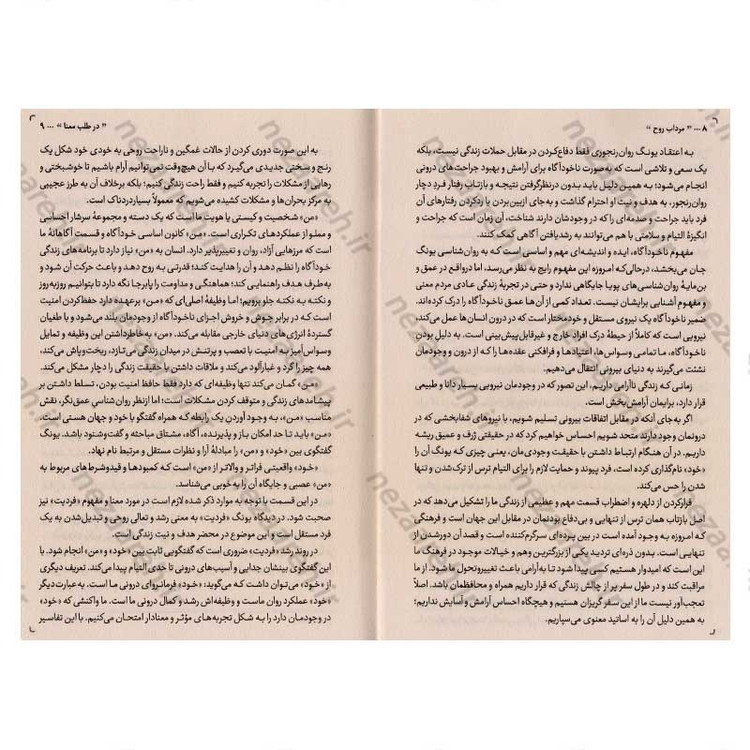 ۸ ... " مرداب روح "
به اعتقاد یونگ روان‌رنجوری فقط دفاع‌کردن در مقابل حملات زندگی نیست، بلکه
یک سعی و تلاشی است که به‌صورت ناخودآگاه برای آرامش و بهبود جراحت‌های درونی
انجام می‌شود؛ به همین دلیل باید بدون درنظرگرفتن نتیجه و بازتاب رفتار فردِ دچار
روان‌رنجور، به هدف و نیت او احترام گذاشت و به‌جای ازبین‌بردن یا ردکردن رفتارهای آن
فرد باید جراحت و صدمه‌ای را که در وجودشان دارند شناخت، آن زمان است که جراحت و
انگیزهٔ التیام و سلامتی با هم می‌توانند به رشدیافتن آگاهی کمک کنند.
مفهوم ناخودآگاه، ایده و اندیشه‌ای مهم و اساسی است که به روان‌شناسی یونگ
جان می‌بخشد، درحالی‌که امروزه این مفهوم رایج به نظر می‌رسد، اما درواقع در عمق و
بن‌مایهٔ روان‌شناسی‌های پویا جایگاهی ندارد و حتی در تجربهٔ زندگی عادی مردم معنی
و مفهوم آشنایی برایشان نیست. تعداد کمی از آن‌ها عمق ناخودآگاه را درک کرده‌اند.
ضمیر ناخودآگاه یک نیروی مستقل و خودمختار است که در درون انسان‌ها عمل می‌کند،
نیرویی است که کاملاً از حیطهٔ درک افراد خارج و غیرقابل‌پیش‌بینی است. به دلیل بودن
ناخودآگاه، ما تمامی وسواس‌ها، اعتیادها و فرافکنی عقده‌ها را که از درون وجودمان
نشئت می‌گیرند به دنیای بیرونی انتقال می‌دهیم.
زمانی که زندگی ناآرامی داریم، این تصور که در وجودمان نیرویی بسیار دانا و طبیعی
قرار دارد، برایمان آرامش‌بخش است.
اگر به‌جای آنکه در مقابل اتفاقات بیرونی تسلیم شویم، با نیروهای شفابخشی که در
درونمان وجود دارند متحد شویم احساس خواهیم کرد که در حقیقتی ژرف و عمیق ریشه
داریم. در آن هنگام ارتباط داشتن با حقیقت وجودی‌مان، یعنی چیزی که یونگ آن را
«خود» نام‌گذاری کرده است، فرد پیوند و حمایت لازم را برای التیام ترس از ترک‌شدن و تنها
شدن را حس می‌کند.
فرارکردن از دلهره و اضطراب قسمت مهم و عظیمی از زندگی ما را تشکیل می‌دهد که در
اصل بازتاب همان ترس از تنهایی و بی‌دفاع بودنمان در مقابل این جهان است و فرهنگی
که امروزه به وجود آمده است در بین پرده‌ای سرگرم‌کننده است و قصد آن دورشدن از
تنهایی است. بدون ذره‌ای تردید یکی از بزرگ‌ترین وهم و خیالات موجود در فرهنگ ما
این است که امیدوار هستیم کسی پیدا شود تا به‌آرامی باعث تغییروتحول ما شود. از ما
مراقبت کند و در طول سفر پر از چالش زندگی که قرار داریم همراه و محافظمان باشد. اصلاً
تعجب‌آور نیست ما از این سفر گریزان هستیم و هیچگاه احساس آرامش و آسایش نداریم؛
به همین دلیل آن را به اساتید معنوی می‌سپاریم.
" در طلب معنا " ... ۹
به این صورت دوری کردن از حالات غمگین و ناراحت روحی به خودی خود شکل یک
رنج و سختی جدیدی می‌گیرد که با آن هیچ‌وقت نمی‌توانیم آرام باشیم تا خوشبختی و
رهایی از مشکلات را تجربه کنیم و فقط راحت زندگی کنیم؛ بلکه برخلاف آن به طرز عجیبی
به مرکز بحران‌ها و مشکلات کشیده می‌شویم که معمولاً بسیار دردناک است.
«من» شخصیت و کیستی یا هویت ما است که یک دسته و مجموعهٔ سرشار احساسی
و مملو از عملکردهای تکراری است. «من» کانون اساسی خودآگاه و قسمت آگاهانهٔ ما
است که مرزهایی آزاد، روان و تغییرپذیر دارد. انسان به «من» نیاز دارد تا برنامه‌های زندگی
خودآگاه را نظم دهد و آن را هدایت کند؛ قدرتی به روح دهد و باعث حرکت آن شود و
به‌طرف هدف راهنمایی کند؛ هماهنگی و مداومت را پابرجا نگه دارد تا بتوانیم روزبه‌روز
و نکته به نکته جلو برویم؛ اما وظیفهٔ اصلی‌ای که «من» برعهده دارد حفظ‌کردن امنیت
است که در برابر جوش و خروش اجزای ناخودآگاه از وجودمان بلند می‌شود و با طغیان
گستردهٔ انرژی‌های دنیای خارجی مقابله می‌کند. «من» به‌خاطرداشتن این وظیفه و تمایل
وسواس‌آمیز به امنیت با تعصب و پرتنش در میدان زندگی می‌تازد، ریخت‌وپاش می‌کند،
همه چیز را گرد و غبارآلود می‌کند و ملاقات داشتن با حقیقت زندگی را دچار مشکل می‌کند.
«من» گمان می‌کند تنها وظیفه‌ای که دارد فقط حافظ امنیت بودن، تسلط داشتن بر
پیشامدهای زندگی و متوقف کردن مشکلات است؛ اما ازنظر روان‌شناسیِ عمق‌نگر، نقش
مناسب «من»، به وجود آوردن یک رابطه که همراه گفتگو با خود و جهان هستی است.
«من» باید تا حد امکان باز و پذیرنده، آگاه، مشتاق مباحثه و گفت‌وشنود باشد. یونگ
گفتگوی بین «خود» و «من» را مبادلهٔ آرا و نظرات مستقل و مرتبط نام نهاد.
«خود» واقعیتی فراتر و والاتر از «من» است که کمبودها و قیدوشرط‌های مربوط به
«من» عصبی و جایگاه آن را به‌خوبی می‌شناسد.
در این قسمت با توجه به موارد ذکر شده لازم است در مورد معنا و مفهوم «فردیت» نیز
صحبت شود. در دیدگاه یونگ «فردیت» به معنی رشد و تعالی روحی و تبدیل‌شدن به یک
فرد مستقل است و این موضوع در محضر هدف و نیت زندگی است.
در روند رشد «فردیت» ضروری است که گفتگویی ثابت بین «خود» و «من» انجام شود. با
این گفتگوی بینشان جدایی و آسیب‌های درونی تا حدی التیام پیدا می‌کند. تعریف دیگری
از «خود» می‌توان داشت که می‌گوید: «خود» فرمانروای درونی ما است. به‌عبارت‌دیگر
«خود» عملکرد روان ماست و وظیفه‌اش رشد و کمال درونی ما است. ما واکنشی که «خود»
در وجودمان دارد را به شکل تجربه‌های مؤثر و معنادار امتحان می‌کنیم. با این تفاسیر
nezareh.ir